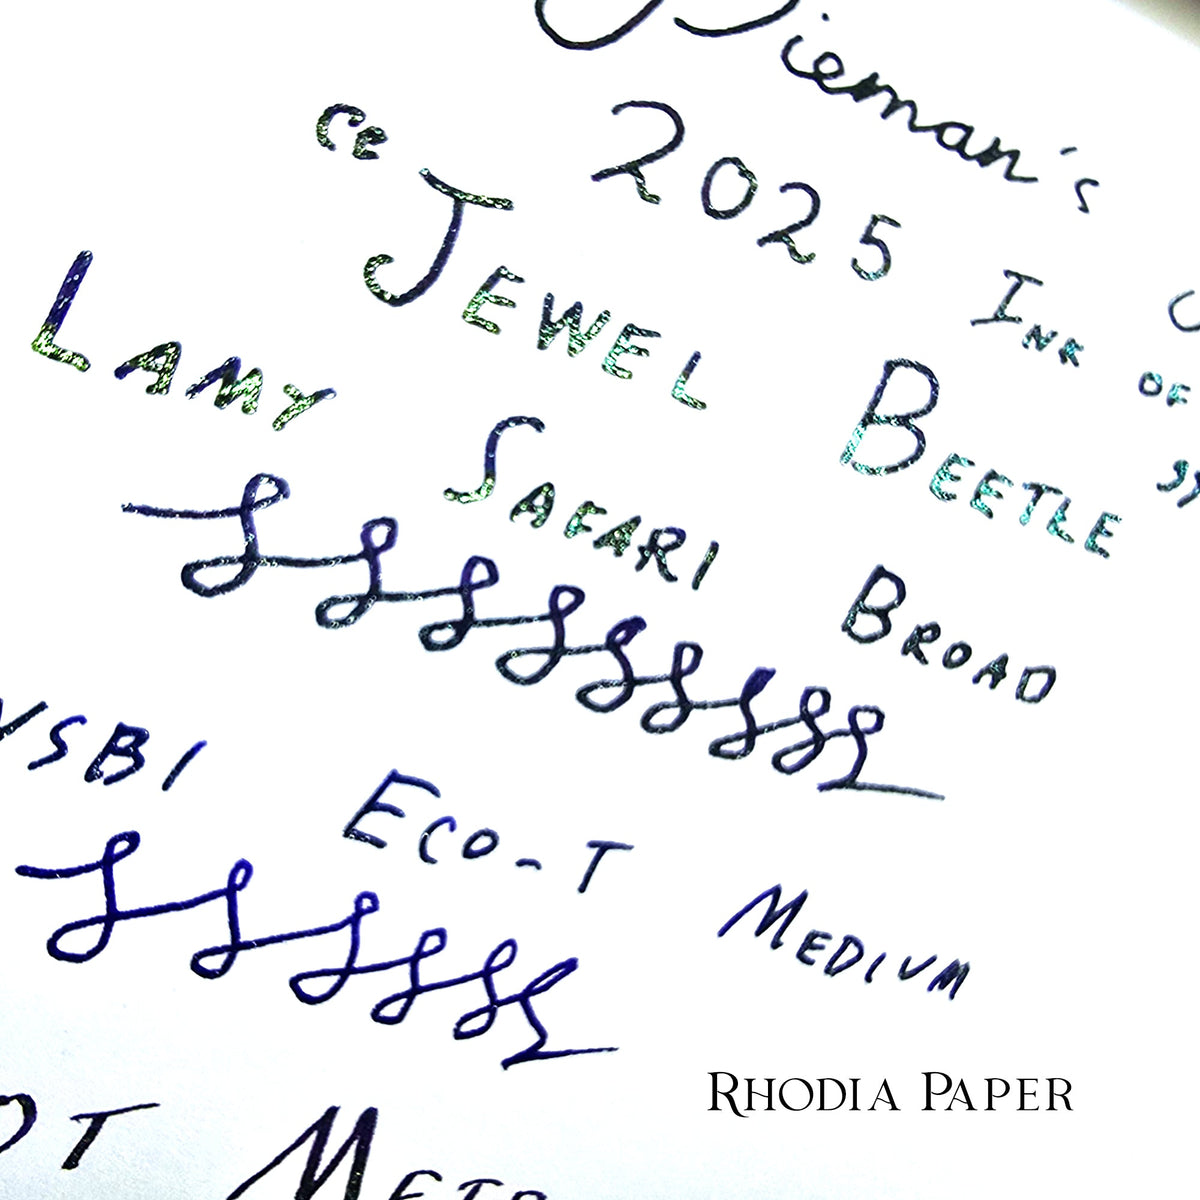 Dieman's
2025 Ink of
“Jewel Beetle”
Lamy Safari Broad
WSBI Eco-T Medium
OT Metr
Rhodia Paper